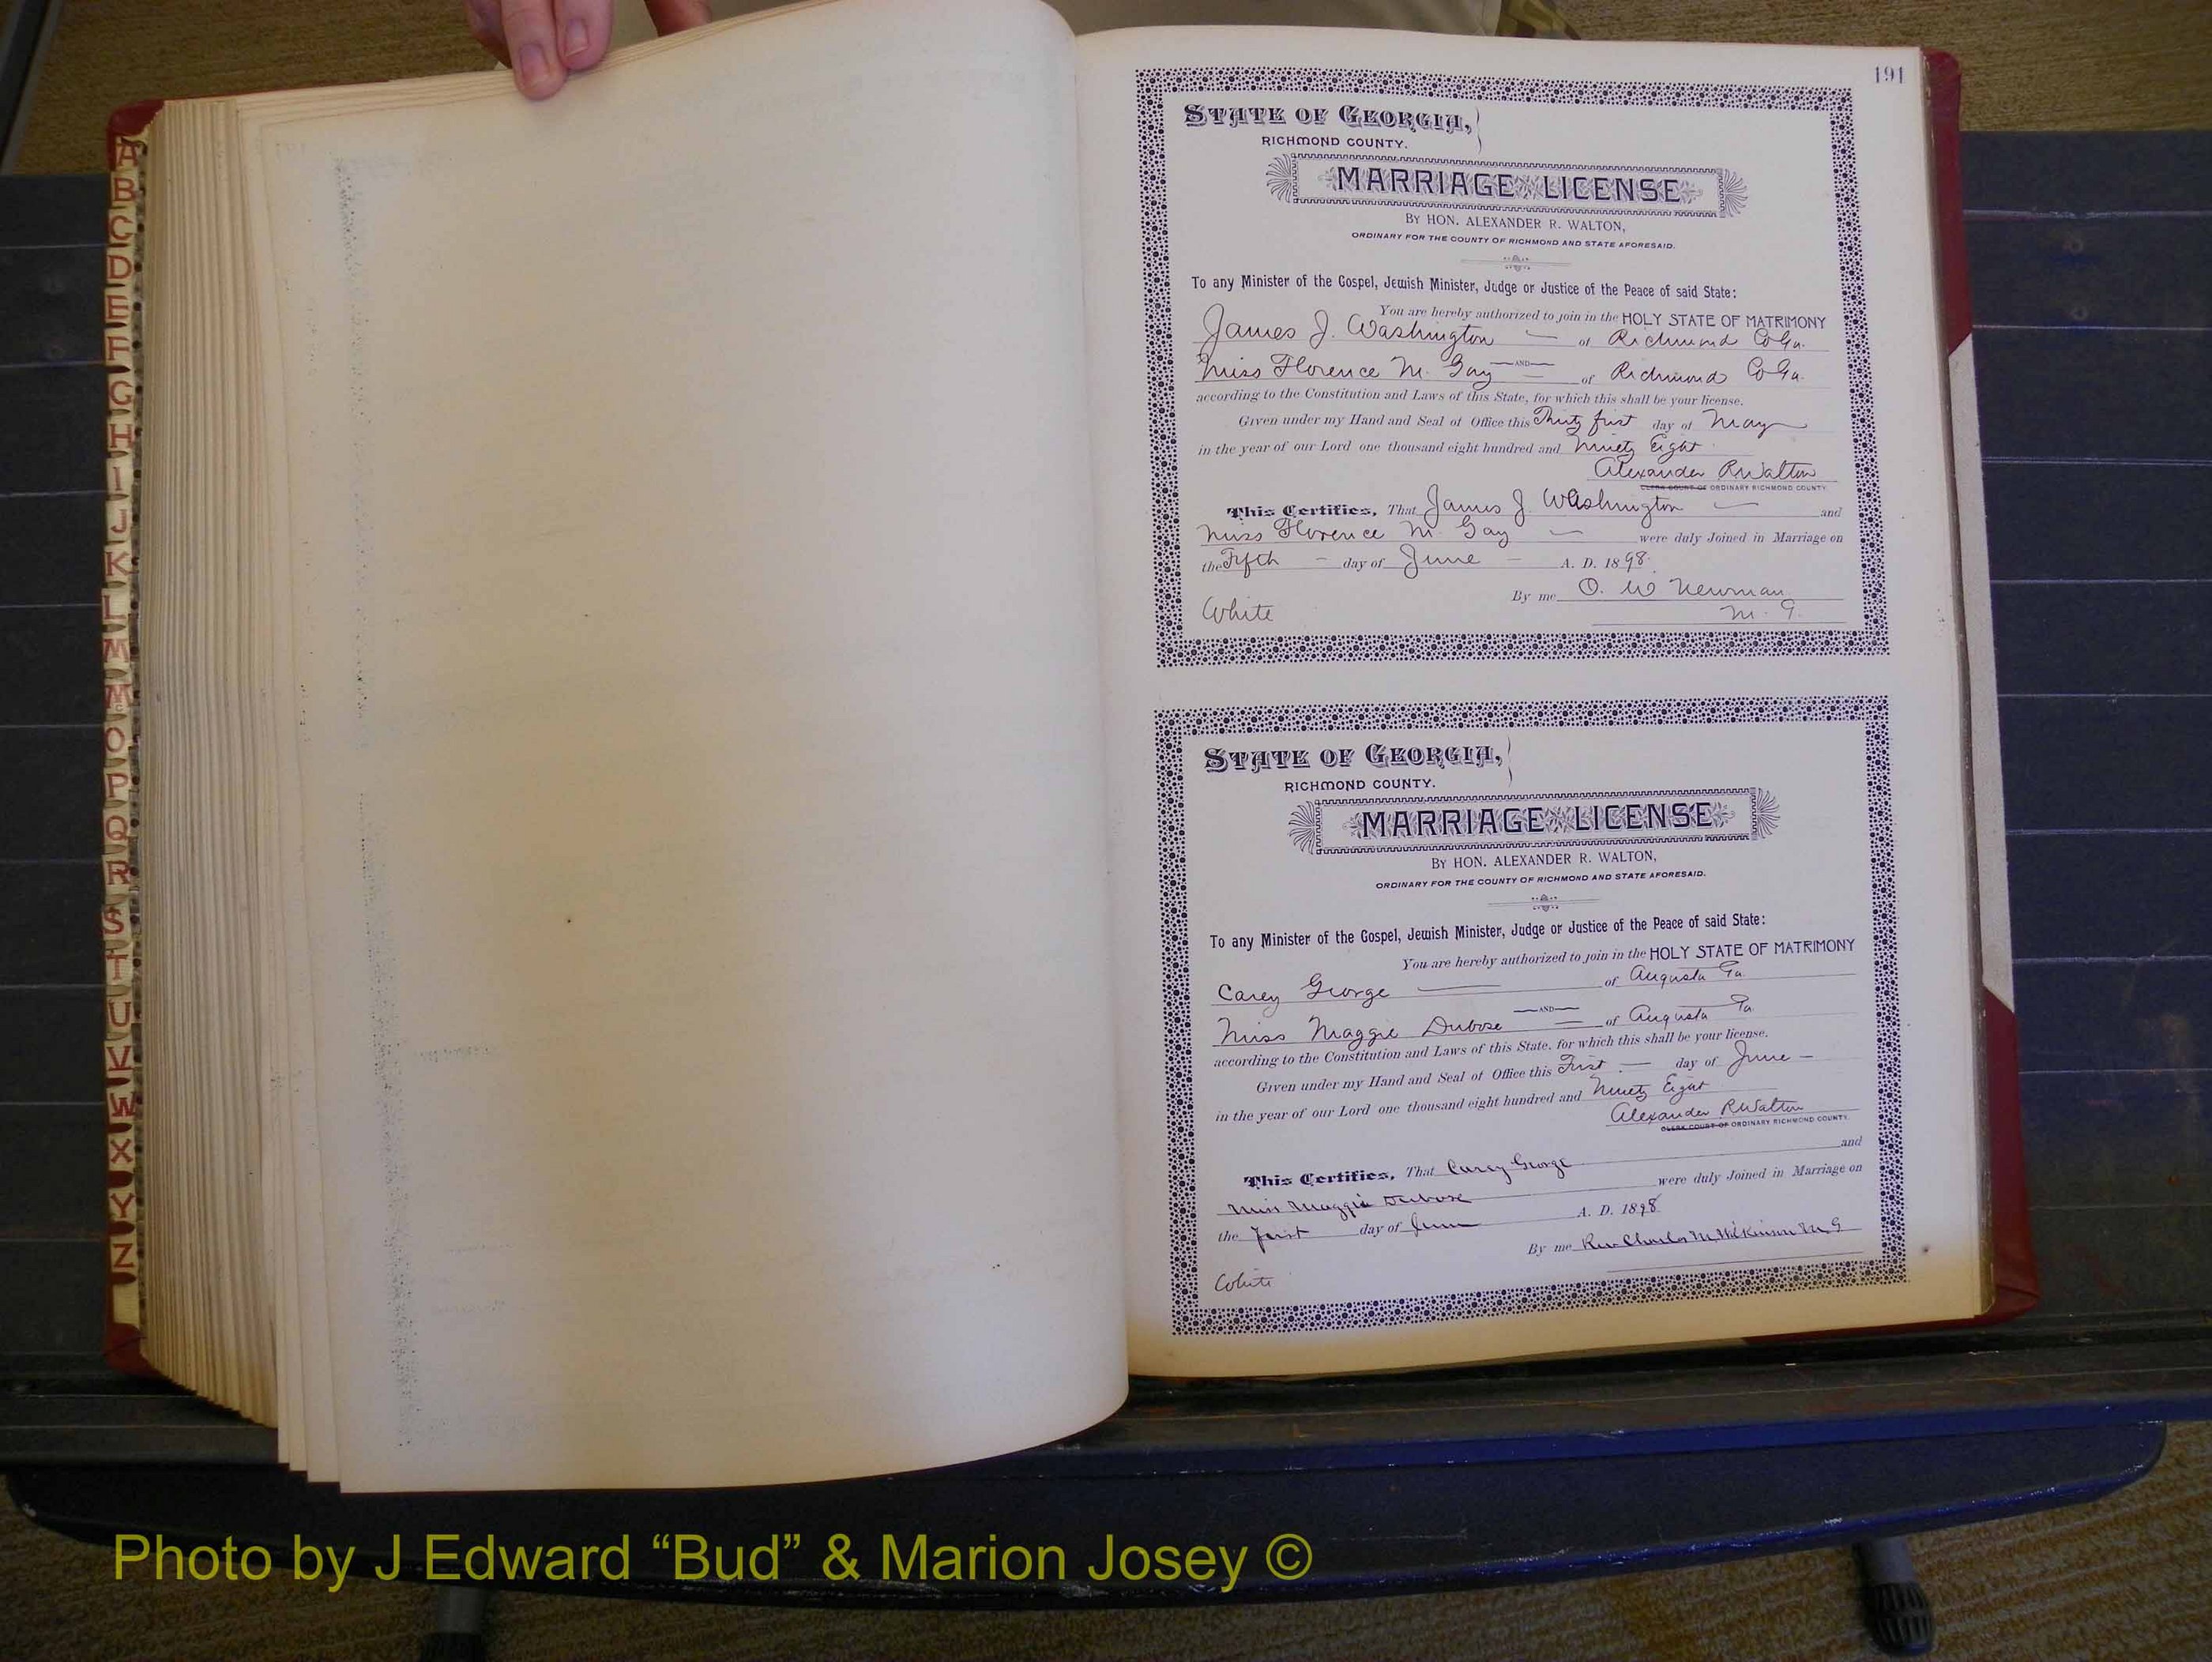 A
B
C
D
E
F
G
H
I
J
K
L
M
Mc
O
P
Q
R
S
T
U
V
W
X
Y
Z
191
STATE OF GEORGIA,
RICHMOND COUNTY.
MARRIAGE LICENSE
BY HON. ALEXANDER R. WALTON,
ORDINARY FOR THE COUNTY OF RICHMOND AND STATE AFORESAID.
To any Minister of the Gospel, Jewish Minister, Judge or Justice of the Peace of said State:
You are hereby authorized to join in the HOLY STATE OF MATRIMONY
James J. Washington — of Richmond Co Ga.
—AND—
Miss Florence M. Gay — of Richmond Co Ga.
according to the Constitution and Laws of this State, for which this shall be your license.
Given under my Hand and Seal of Office this Thirty first day of May
in the year of our Lord one thousand eight hundred and Ninety Eight
Alexander R Walton
CLERK COURT OF ORDINARY RICHMOND COUNTY.
This Certifies, That James J Washington — and
Miss Florence M. Gay — were duly Joined in Marriage on
the Fifth — day of June — A. D. 1898.
By me O. W Newman
M. G.
White
STATE OF GEORGIA,
RICHMOND COUNTY.
MARRIAGE LICENSE
BY HON. ALEXANDER R. WALTON,
ORDINARY FOR THE COUNTY OF RICHMOND AND STATE AFORESAID.
To any Minister of the Gospel, Jewish Minister, Judge or Justice of the Peace of said State:
You are hereby authorized to join in the HOLY STATE OF MATRIMONY
Carey George — of Augusta Ga.
—AND—
Miss Maggie Dubose — of Augusta Ga.
according to the Constitution and Laws of this State, for which this shall be your license.
Given under my Hand and Seal of Office this First — day of June —
in the year of our Lord one thousand eight hundred and Ninety Eight
Alexander R Walton
CLERK COURT OF ORDINARY RICHMOND COUNTY.
This Certifies, That Carey George and
Miss Maggie Dubose were duly Joined in Marriage on
the First day of June A. D. 1898
By me Rev Charles M. Wilkinson M. G
White
Photo by J Edward “Bud” & Marion Josey ©